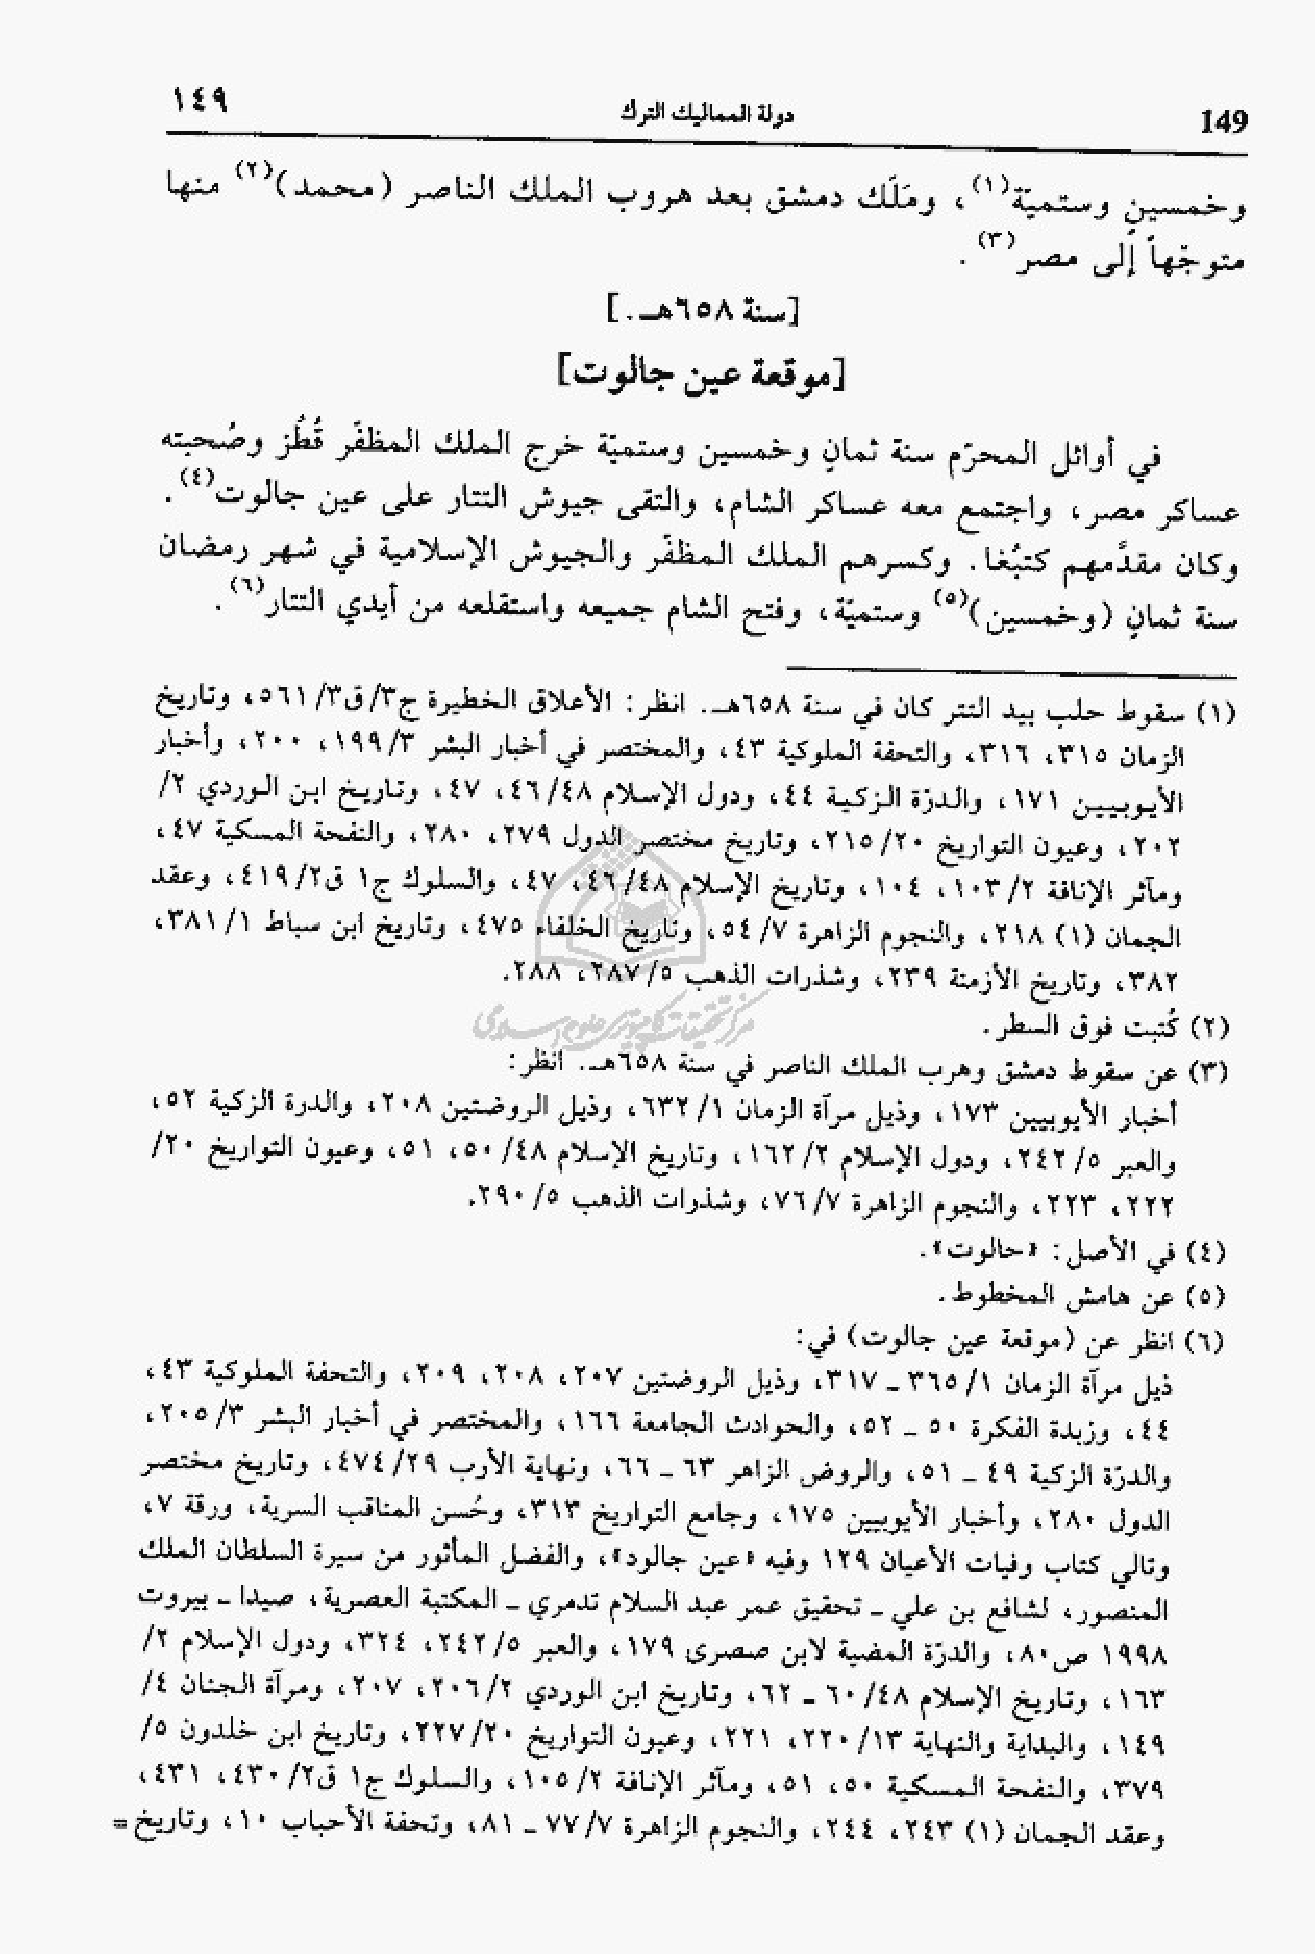 149 دولة المماليك الترك ١٤٩
وخمسين وستميّة(١)، ومَلَك دمشق بعد هروب الملك الناصر (محمد)(٢) منها
متوجّهاً إلى مصر(٣).
[سنة ٦٥٨هـ.]
[موقعة عين جالوت]
في أوائل المحرّم سنة ثمانٍ وخمسين وستميّة خرج الملك المظفّر قُطُز وصُحبته
عساكر مصر، واجتمع معه عساكر الشام، والتقى جيوش التتار على عين جالوت(٤).
وكان مقدَّمهم كتبُغا. وكسرهم الملك المظفّر والجيوش الإسلامية في شهر رمضان
سنة ثمانٍ (وخمسين)(٥) وستميّة، وفتح الشام جميعه واستقلعه من أيدي التتار(٦).
(١) سقوط حلب بيد التتر كان في سنة ٦٥٨هـ. انظر: الأعلاق الخطيرة ج٣/ ق٣/ ٥٦١، وتاريخ
الزمان ٣١٥، ٣١٦، والتحفة الملوكية ٤٣، والمختصر في أخبار البشر ٣/ ١٩٩، ٢٠٠، وأخبار
الأيوبيين ١٧١، والدرّة الزكية ٤٤، ودول الإسلام ٤٨/ ٤٦، ٤٧، وتاريخ ابن الوردي ٢/
٢٠٢، وعيون التواريخ ٢٠/ ٢١٥، وتاريخ مختصر الدول ٢٧٩، ٢٨٠، والنفحة المسكية ٤٧،
ومآثر الإنافة ٢/ ١٠٣، ١٠٤، وتاريخ الإسلام ٤٨/ ٤٦، ٤٧، والسلوك ج١ ق٢/ ٤١٩، وعقد
الجمان (١) ٢١٨، والنجوم الزاهرة ٧/ ٥٤، وتاريخ الخلفاء ٤٧٥، وتاريخ ابن سباط ١/ ٣٨١،
٣٨٢، وتاريخ الأزمنة ٢٣٩، وشذرات الذهب ٥/ ٢٨٧، ٢٨٨.
(٢) كُتبت فوق السطر.
(٣) عن سقوط دمشق وهرب الملك الناصر في سنة ٦٥٨هـ. انظر:
أخبار الأيوبيين ١٧٣، وذيل مرآة الزمان ١/ ٦٣٢، وذيل الروضتين ٢٠٨، والدرة الزكية ٥٢،
والعبر ٥/ ٢٤٢، ودول الإسلام ٢/ ١٦٢، وتاريخ الإسلام ٤٨/ ٥٠، ٥١، وعيون التواريخ ٢٠/
٢٢٢، ٢٢٣، والنجوم الزاهرة ٧/ ٧٦، وشذرات الذهب ٥/ ٢٩٠.
(٤) في الأصل: «حالوت».
(٥) عن هامش المخطوط.
(٦) انظر عن (موقعة عين جالوت) في:
ذيل مرآة الزمان ١/ ٣٦٥ ـ ٣١٧، وذيل الروضتين ٢٠٧، ٢٠٨، ٢٠٩، والتحفة الملوكية ٤٣،
٤٤، وزبدة الفكرة ٥٠ ـ ٥٢، والحوادث الجامعة ١٦٦، والمختصر في أخبار البشر ٣/ ٢٠٥،
والدرّة الزكية ٤٩ ـ ٥١، والروض الزاهر ٦٣ ـ ٦٦، ونهاية الأرب ٢٩/ ٤٧٤، وتاريخ مختصر
الدول ٢٨٠، وأخبار الأيوبيين ١٧٥، وجامع التواريخ ٣١٣، وحُسن المناقب السرية، ورقة ٧،
وتالي كتاب وفيات الأعيان ١٢٩ وفيه «عين جالود»، والفضل المأثور من سيرة السلطان الملك
المنصور، لشافع بن علي ـ تحقيق عمر عبد السلام تدمري ـ المكتبة العصرية، صيدا ـ بيروت
١٩٩٨ ص٨٠، والدرّة المضية لابن صصرى ١٧٩، والعبر ٥/ ٢٤٢، ٣٢٤، ودول الإسلام ٢/
١٦٣، وتاريخ الإسلام ٤٨/ ٦٠ ـ ٦٢، وتاريخ ابن الوردي ٢/ ٢٠٦، ٢٠٧، ومرآة الجنان ٤/
١٤٩، والبداية والنهاية ١٣/ ٢٢٠، ٢٢١، وعيون التواريخ ٢٠/ ٢٢٧، وتاريخ ابن خلدون ٥/
٣٧٩، والنفحة المسكية ٥٠، ٥١، ومآثر الإنافة ٢/ ١٠٥، والسلوك ج١ ق٢/ ٤٣٠، ٤٣١،
وعقد الجمان (١) ٢٤٣، ٢٤٤، والنجوم الزاهرة ٧/ ٧٧ ـ ٨١، وتحفة الأحباب ١٠، وتاريخ=
مركز تحقيقات كامپيوتري علوم اسلامي